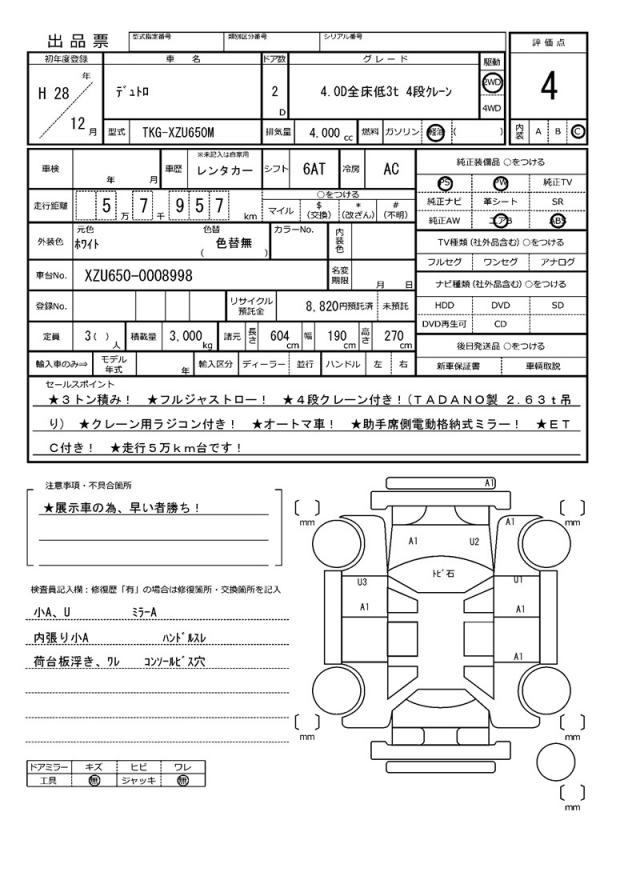 出品票 型式指定番号 類別区分番号 シリアル番号
評価点
初年度登録 車名 ドア数 グレード 駆動
H 28 年 12 月
ﾃﾞｭﾄﾛ 2 D 4.0D全床低3t 4段ｸﾚｰﾝ 2WD 4WD
4
型式 TKG-XZU650M 排気量 4,000 cc 燃料 ガソリン 軽油 ( )
内装 A B C
車検 年 月 車歴 ※未記入は自家用 レンタカー シフト 6AT 冷房 AC
純正装備品 ○をつける
PS PW 純正TV
純正ナビ 革シート SR
純正AW エアB ABS
走行距離 5 万 7 千 9 5 7 km
○をつける
マイル $ (交換) * (改ざん) # (不明)
外装色 元色 ﾎﾜｲﾄ 色替 ( 色替無 ) カラーNo. 内装色
TV種類 (社外品含む) ○をつける
フルセグ ワンセグ アナログ
車台No. XZU650-0008998 名変期限 月 日
ナビ種類 (社外品含む) ○をつける
HDD DVD SD
DVD再生可 CD
登録No. リサイクル預託金 8,820円預託済 未預託
定員 3( ) 人 積載量 3,000 kg 諸元 長さ 604 cm 幅 190 cm 高さ 270 cm
後日発送品 ○をつける
新車保証書 車輌取説
輸入車のみ⇒ モデル年式 年 輸入区分 ディーラー 並行 ハンドル 左 右
セールスポイント
★３トン積み！ ★フルジャストロー！ ★４段クレーン付き！（ＴＡＤＡＮＯ製 ２.６３ｔ吊
り） ★クレーン用ラジコン付き！ ★オートマ車！ ★助手席側電動格納式ミラー！ ★ＥＴ
Ｃ付き！ ★走行５万ｋｍ台です！
注意事項・不具合箇所
★展示車の為、早い者勝ち！
検査員記入欄：修復歴「有」の場合は修復箇所・交換箇所を記入
小A、U ﾐﾗｰA
内張り小A ﾊﾝﾄﾞﾙｽﾚ
荷台板浮き、ﾜﾚ ｺﾝｿｰﾙﾋﾞｽ穴
ドアミラー キズ ヒビ ワレ
工具 無 ジャッキ 無
A1
mm mm
A1
A1 U2
ﾄﾋﾞ石
U3 U1
A1 A1
A1
mm mm
mm